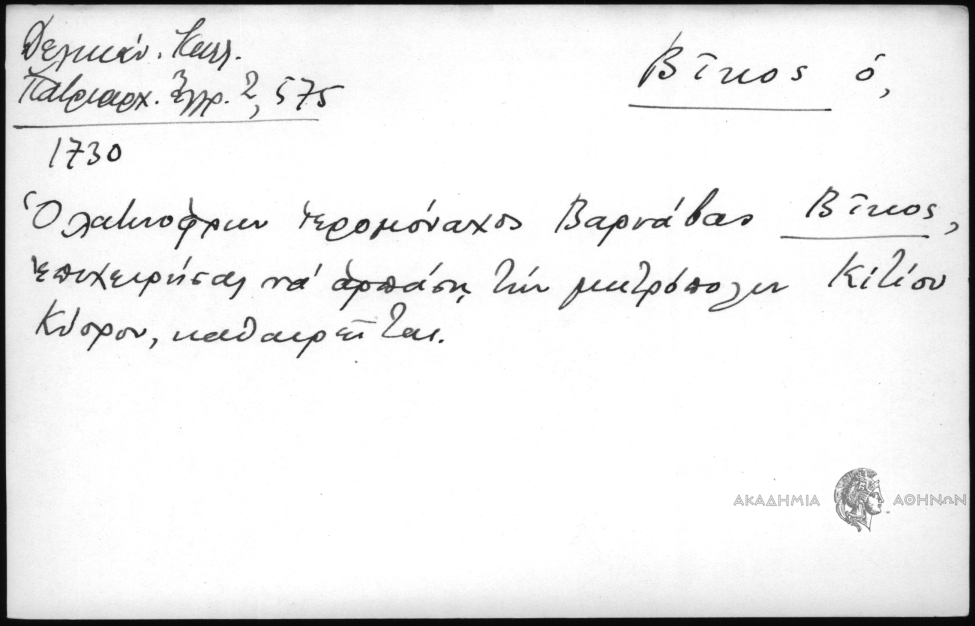 Δελικάν. Καλλ.
Πατριαρχ. Ἔγγρ. 2, 575
Βῖκος ὁ,
1730
Ὁ λατινόφρων ἱερομόναχος Βαρνάβας Βῖκος,
ἐπιχειρήσας νά ἁρπάσῃ τήν μητρόπολιν Κιτίου
Κύπρου, καθαιρεῖται.
ΑΚΑΔΗΜΙΑ ΑΘΗΝΩΝ